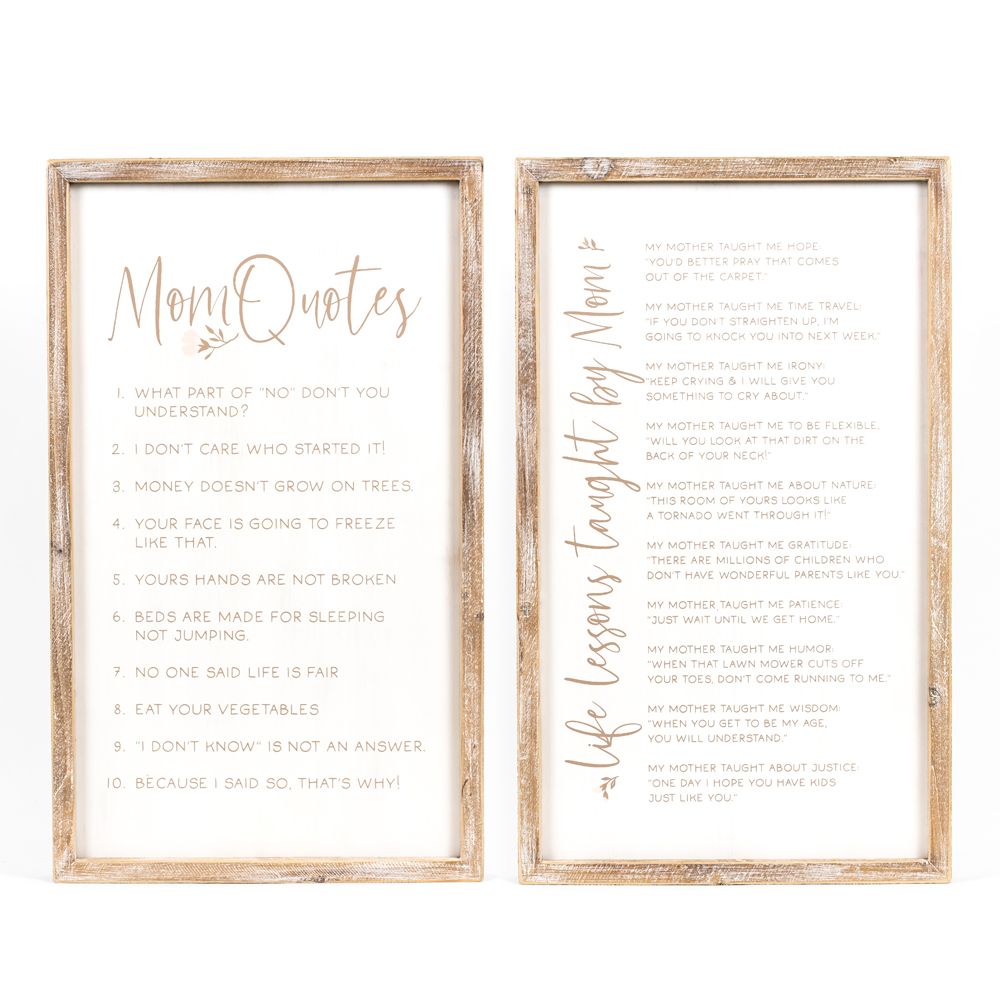 Mom Quotes
1. WHAT PART OF "NO" DON'T YOU
UNDERSTAND?
2. I DON'T CARE WHO STARTED IT!
3. MONEY DOESN'T GROW ON TREES.
4. YOUR FACE IS GOING TO FREEZE
LIKE THAT.
5. YOURS HANDS ARE NOT BROKEN
6. BEDS ARE MADE FOR SLEEPING
NOT JUMPING.
7. NO ONE SAID LIFE IS FAIR
8. EAT YOUR VEGETABLES
9. "I DON'T KNOW" IS NOT AN ANSWER.
10. BECAUSE I SAID SO, THAT'S WHY!
Life lessons taught by Mom
MY MOTHER TAUGHT ME HOPE:
"YOU'D BETTER PRAY THAT COMES
OUT OF THE CARPET."
MY MOTHER TAUGHT ME TIME TRAVEL:
"IF YOU DON'T STRAIGHTEN UP, I'M
GOING TO KNOCK YOU INTO NEXT WEEK."
MY MOTHER TAUGHT ME IRONY:
"KEEP CRYING & I WILL GIVE YOU
SOMETHING TO CRY ABOUT."
MY MOTHER TAUGHT ME TO BE FLEXIBLE,
"WILL YOU LOOK AT THAT DIRT ON THE
BACK OF YOUR NECK!"
MY MOTHER TAUGHT ME ABOUT NATURE:
"THIS ROOM OF YOURS LOOKS LIKE
A TORNADO WENT THROUGH IT!"
MY MOTHER TAUGHT ME GRATITUDE:
"THERE ARE MILLIONS OF CHILDREN WHO
DON'T HAVE WONDERFUL PARENTS LIKE YOU."
MY MOTHER TAUGHT ME PATIENCE:
"JUST WAIT UNTIL WE GET HOME."
MY MOTHER TAUGHT ME HUMOR:
"WHEN THAT LAWN MOWER CUTS OFF
YOUR TOES, DON'T COME RUNNING TO ME."
MY MOTHER TAUGHT ME WISDOM:
"WHEN YOU GET TO BE MY AGE,
YOU WILL UNDERSTAND."
MY MOTHER TAUGHT ABOUT JUSTICE:
"ONE DAY I HOPE YOU HAVE KIDS
JUST LIKE YOU."